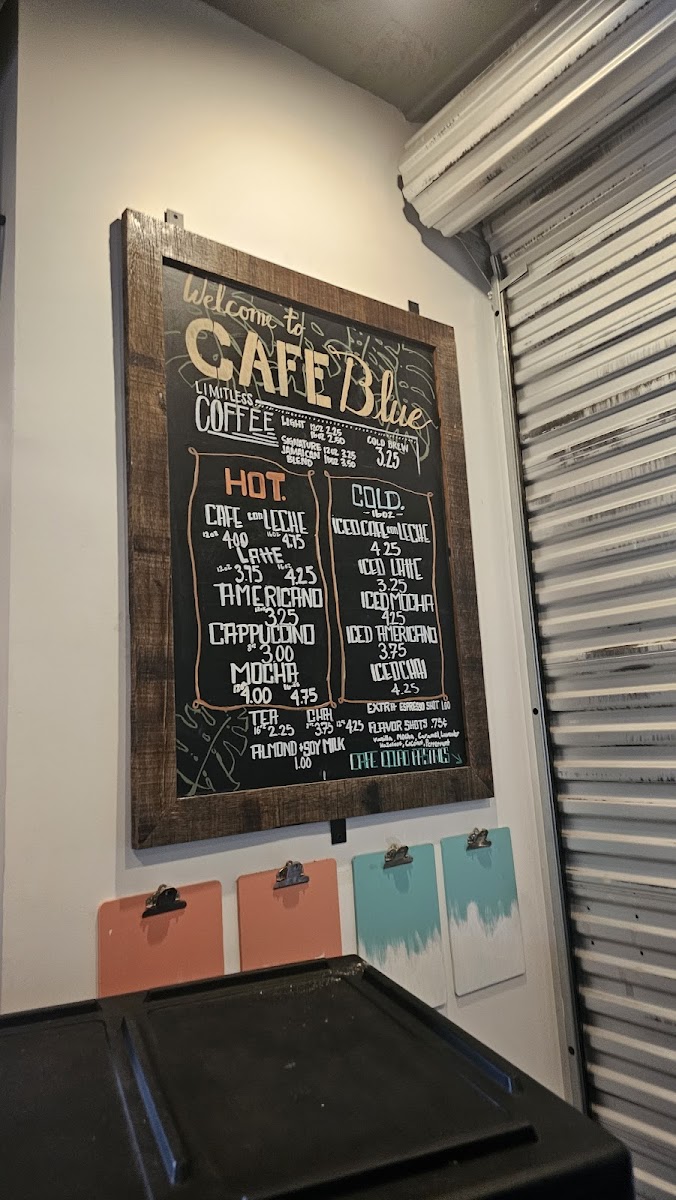 Welcome to
CAFE Blue
LIMITLESS
COFFEE
LIGHT 12oz 2.25
16oz 2.50
SIGNATURE 12oz 3.25
JAMAICAN 16oz 3.50
BLEND
COLD BREW
3.25
HOT.
CAFE CON LECHE
12oz 4.00 16oz 4.75
LATTE
12oz 3.75 16oz 4.25
AMERICANO
3.25
CAPPUCCINO
3.00
MOCHA
4.00 4.75
COLD.
-16oz-
ICED CAFE CON LECHE
4.25
ICED LATTE
3.25
ICED MOCHA
4.25
ICED AMERICANO
3.75
ICED CHAI
4.25
TEA
16oz 2.25
CHAI
3.75 4.25
ALMOND + SOY MILK
1.00
EXTRA ESPRESSO SHOT 1.00
FLAVOR SHOTS .75¢
Vanilla, Mocha, Caramel, Lavender
Hazelnut, Coconut, Peppermint